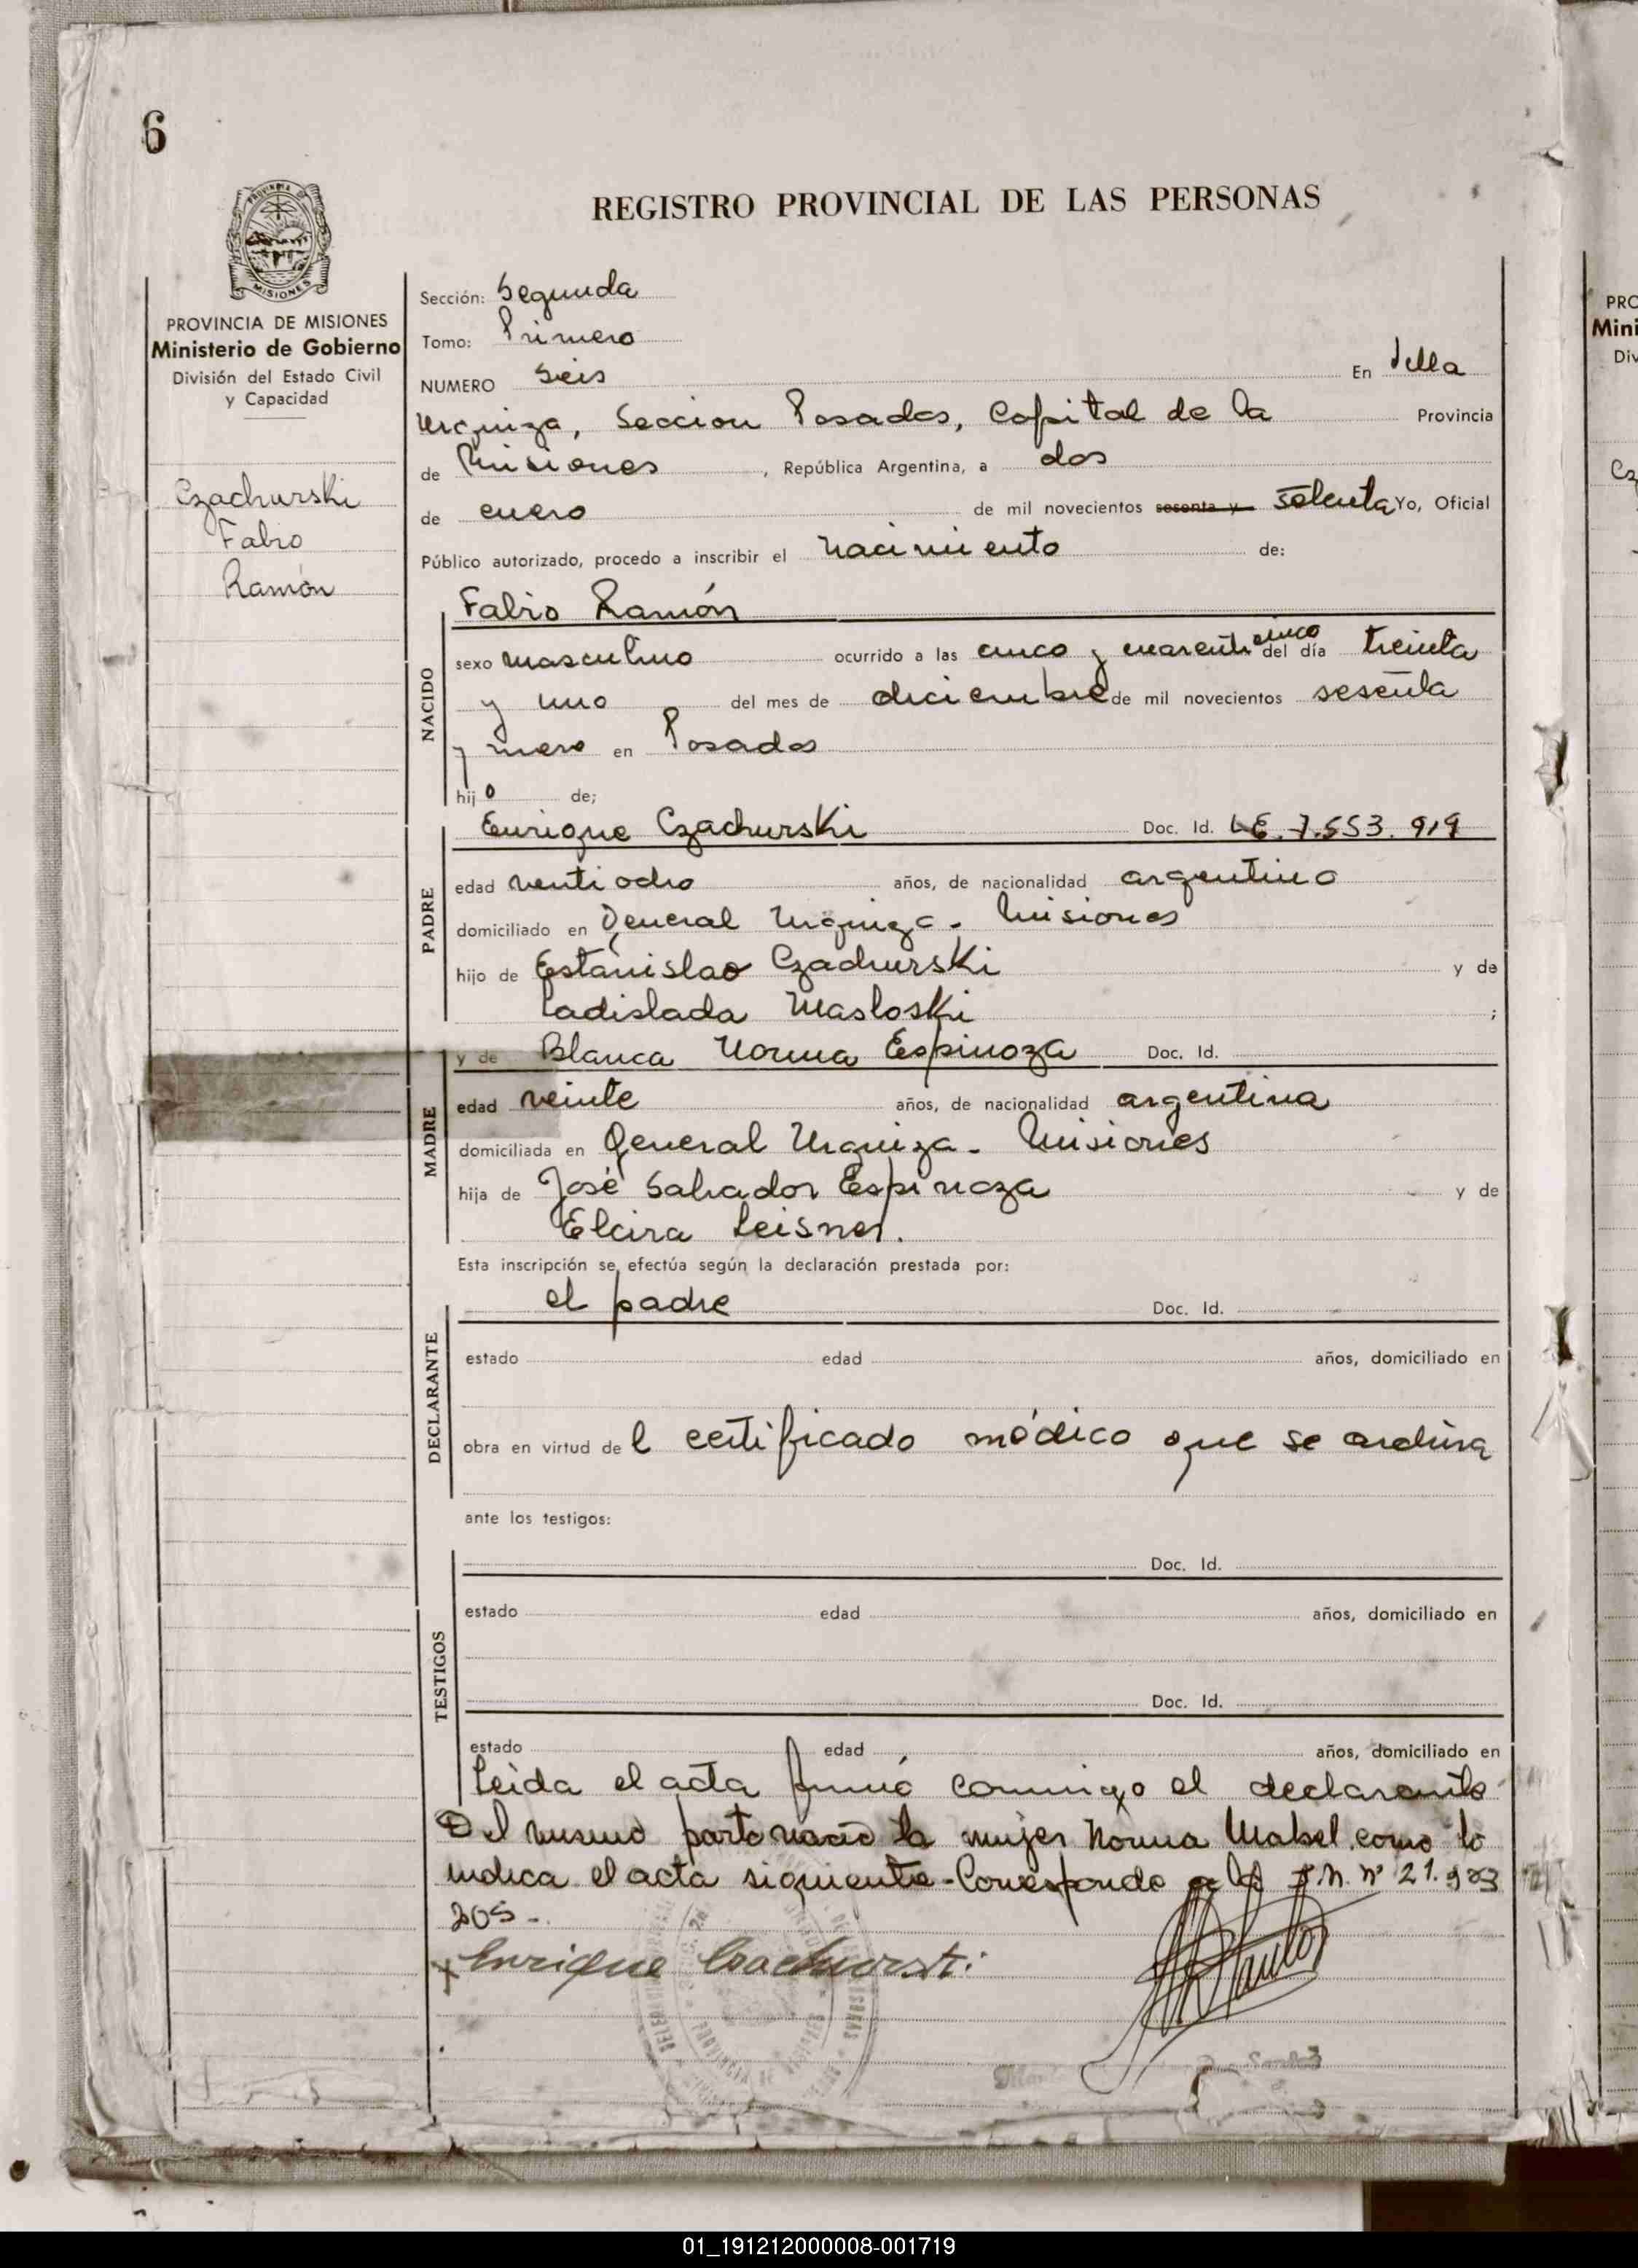 6
REGISTRO PROVINCIAL DE LAS PERSONAS
PROVINCIA DE MISIONES
Ministerio de Gobierno
División del Estado Civil
y Capacidad
Czachurski
Fabio
Ramón
Sección: Segunda
Tomo: Primero
NUMERO seis En Villa
Urquiza, Seccion Posadas, Capital de la Provincia
de Misiones, República Argentina, a dos
de enero de mil novecientos sesenta y setenta Yo, Oficial
Público autorizado, procedo a inscribir el nacimiento de:
Fabio Ramón
NACIDO
sexo masculino ocurrido a las cinco y cuarenta cinco del día treinta
y uno del mes de diciembre de mil novecientos sesenta
y nueve en Posadas
hijo de;
PADRE
Enrique Czachurski Doc. Id. LE. 7.553.919
edad ventiocho años, de nacionalidad argentino
domiciliado en General Urquiza - Misiones
hijo de Estanislao Czachurski y de
Ladislada Masloski ;
MADRE
y de Blanca Norma Espinoza Doc. Id.
edad veinte años, de nacionalidad argentina
domiciliada en General Urquiza - Misiones
hija de José Salvador Espinoza y de
Elcira Leisner.
Esta inscripción se efectúa según la declaración prestada por:
DECLARANTE
el padre Doc. Id.
estado edad años, domiciliado en
obra en virtud del certificado médico que se archiva
ante los testigos:
TESTIGOS
Doc. Id.
estado edad años, domiciliado en
Doc. Id.
estado edad años, domiciliado en
Leida el acta firmó conmigo el declarante
Del mismo parto nació la mujer Norma Mabel como lo
indica el acta siguiente - Corresponde a la nº 21.903
205 -
x Enrique Czachurski
01_191212000008-001719